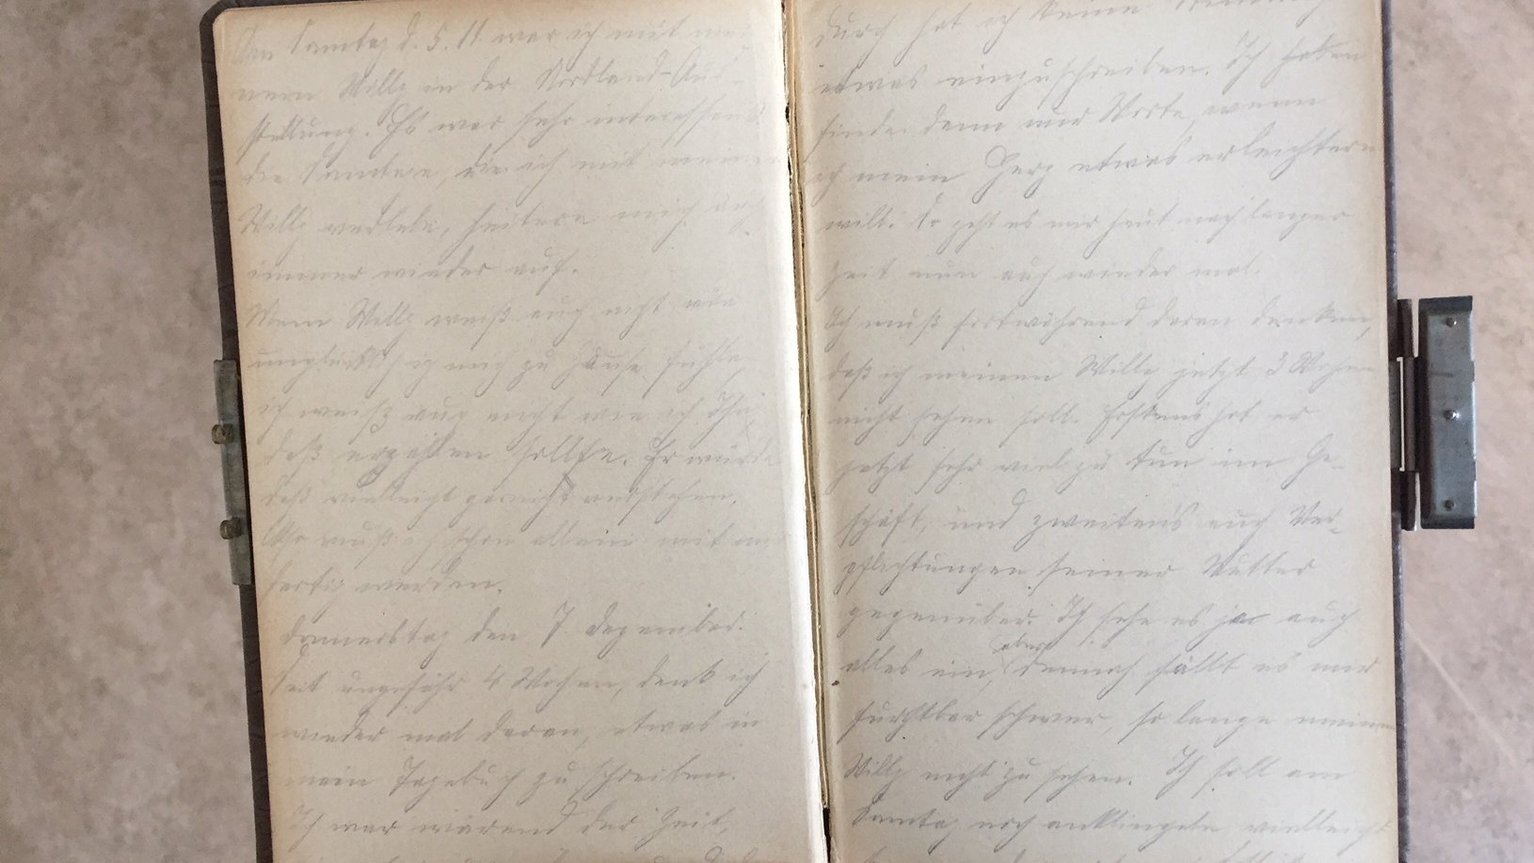 Am Samtag d. 5. 11. war ich mit mei-
nem Willy in der Nordland-Aus-
stellung. Es war sehr interessant
die Samtage, die ich mit meinem
Willy verlebe, heitern mich auch
immer wieder auf.
Mein Willy weiß auch nicht wie
unglücklich ich mich zu Hause fühle,
ich weiß auch nicht wie ich Ihm
daß erzählen sollte. Er würde
daß vielleicht garnicht verstehen.
So muß ich schon allein mit
fertig werden.
Donnerstag den 7. Dezember.
Seit ungefähr 4 Wochen, denk ich
wieder mal daran, etwas in
mein Tagebuch zu schreiben.
Ich war wärend der Zeit,
durch hat ich keine
etwas einzuschreiben. Ich
finde denn nur Worte, wenn
ich mein Herz etwas erleichtern
will. So geht es mir heut nach langer
Zeit nun auch wieder mal.
Ich muß fortwährend daran denken,
daß ich meinen Willy jetzt 3 Wochen
nicht sehen soll. Erstens hat er
jetzt sehr viel zu tun im Ge-
schäft, und zweitens auch Ver-
pflichtungen seiner Mutter
gegenüber. Ich sehe es ja auch
alles ein, aber dennoch fällt es mir
furchtbar schwer, so lange meinen
Willy nicht zu sehen. Ich soll am
Samtag noch anklingeln vielleicht